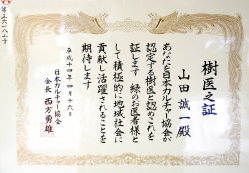 第五六八上号
樹医之証
山田誠一殿
あなたを日本カルチャー協会が
認定する樹医と認めこれを
証します 緑のお医者様と
して積極的に地域社会に
貢献し活躍されることを
期待します
平成十四年四月十六日
日本カルチャー協会
会長 西方勇雄